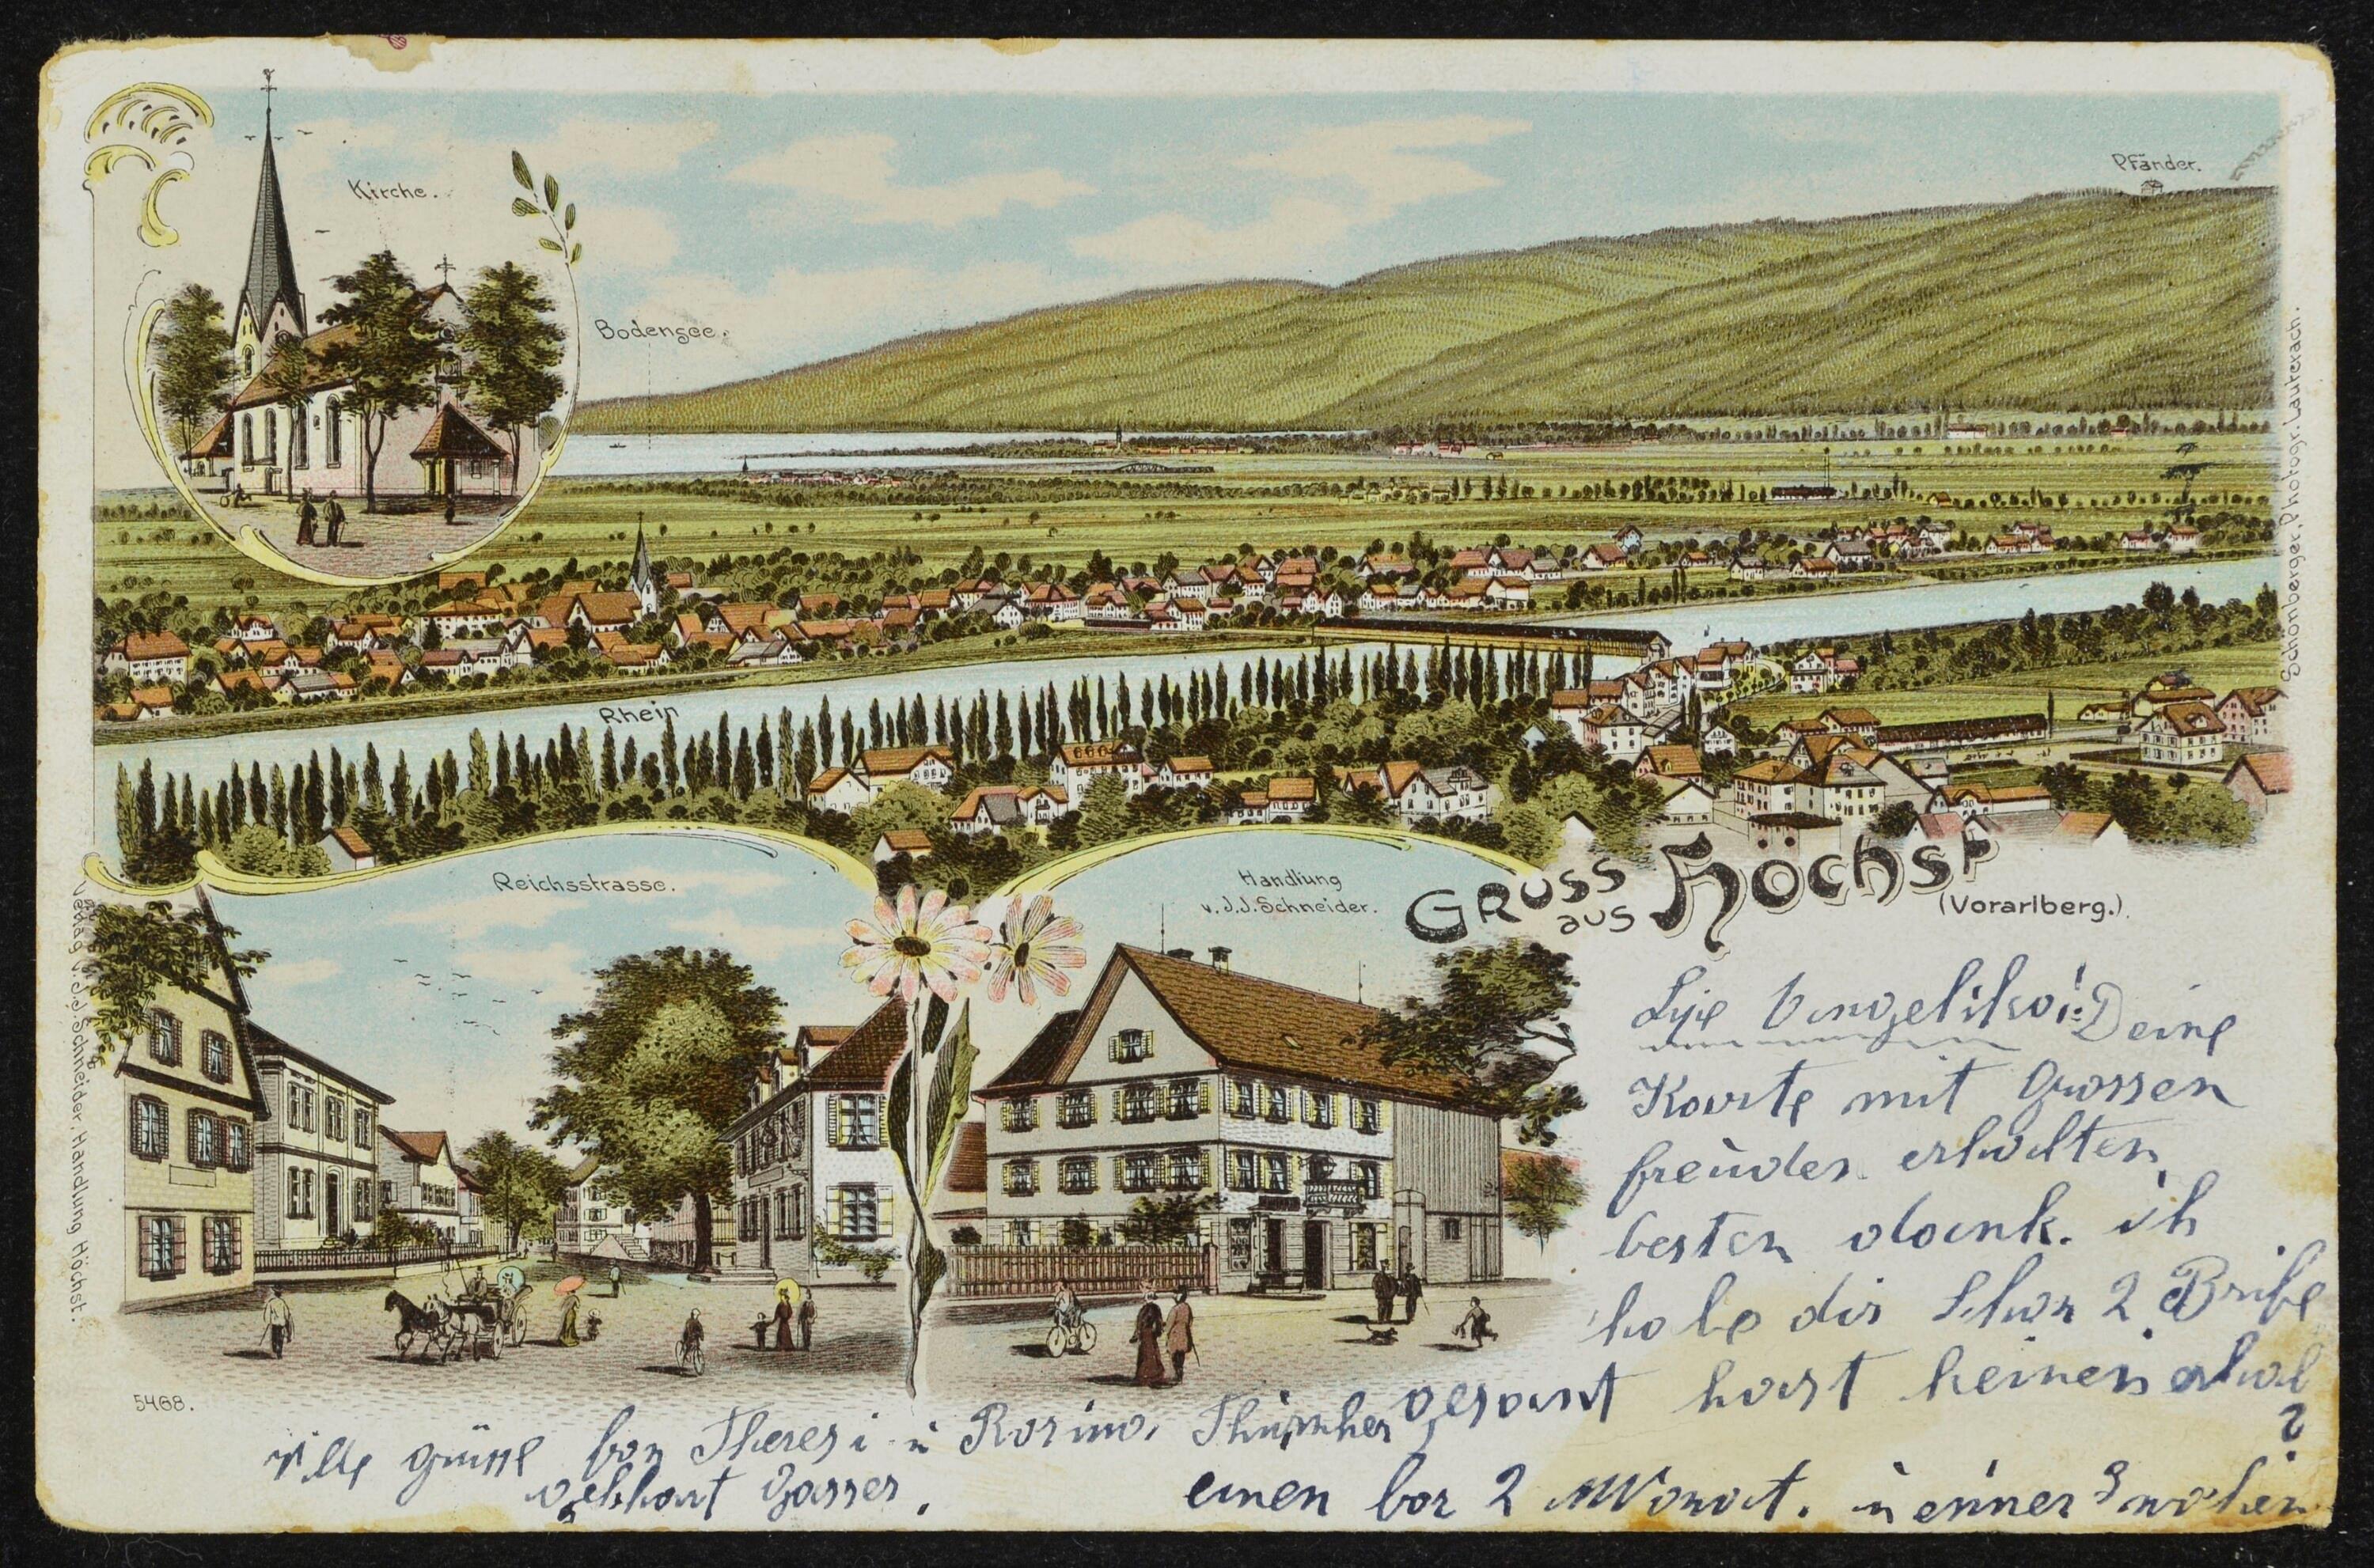 Kirche.
Pfänder.
Bodensee.
Rhein
Schönberger, Photogr. Lauterach.
Reichsstrasse.
Handlung
v. J.J. Schneider.
Gruss
aus Höchst
(Vorarlberg.)
Verlag v. J.J. Schneider, Handlung Höchst.
5468.
Deine
Karte mit Grossen
freüden erhalten
besten dank. ich
habe dir schon 2 Brife
gesant hast keinen erhal
?
einen vor 2 Monat. ü einer 3 wochen
grüsse von Theres i ü Rosina,
gebhart Gasser.